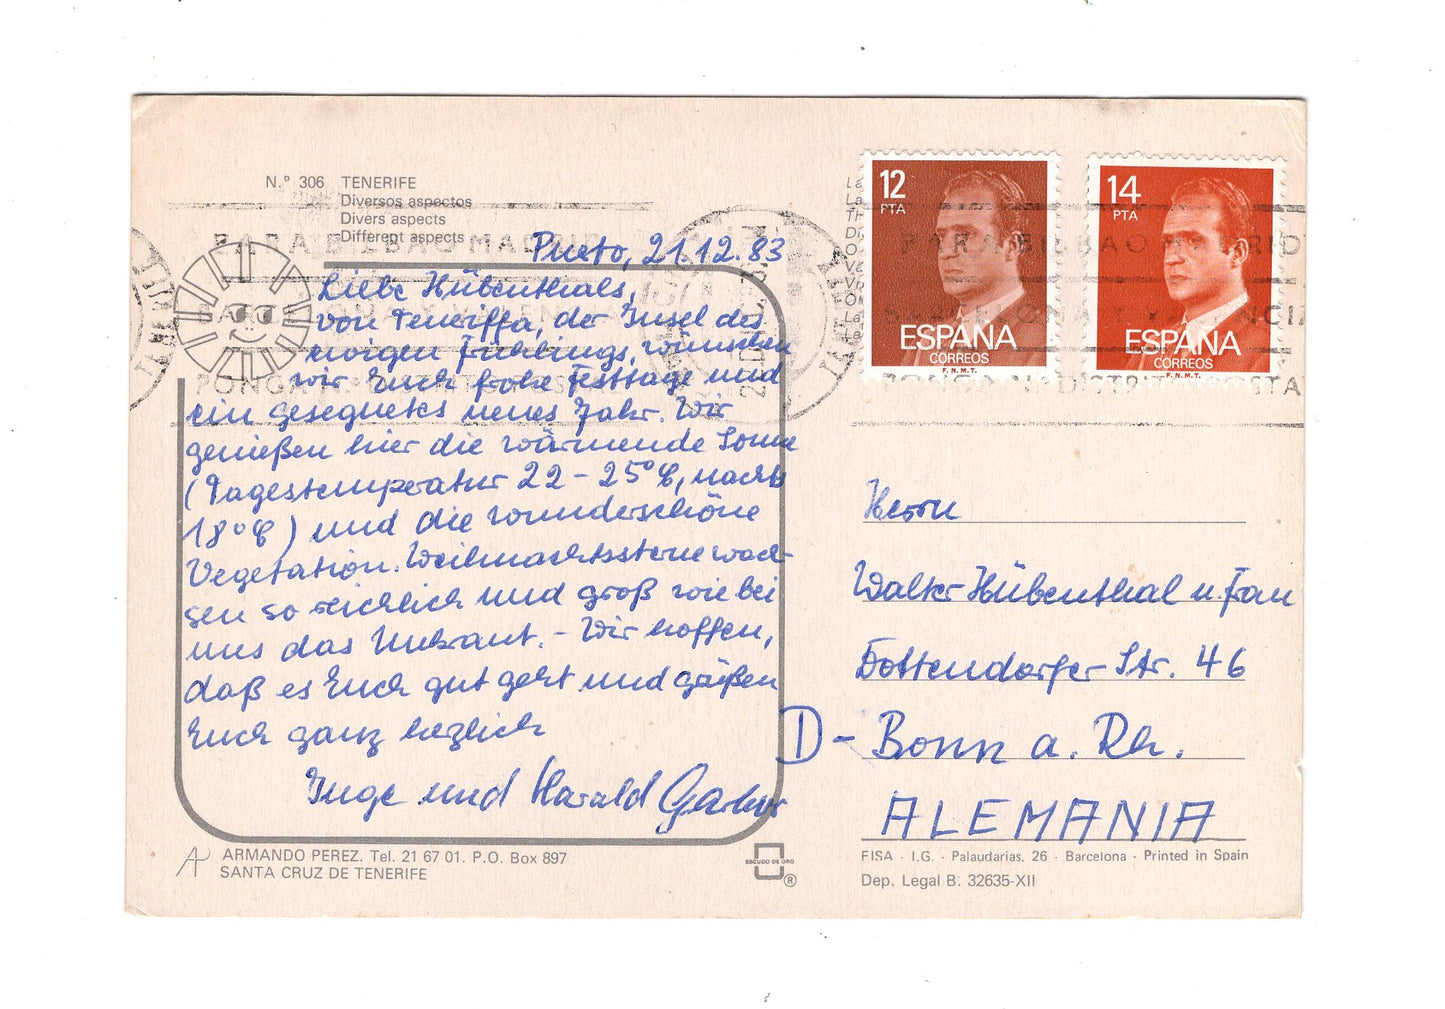 N.º 306 TENERIFE
Diversos aspectos
Divers aspects
Different aspects
PARA BILBAO MADRID
Pueto, 21.12.83
Liebe Hübenthals,
von Teneriffa, der Insel des
ewigen Frühlings, wünschen
wir Euch frohe Festtage und
ein gesegnetes neues Jahr. Wir
genießen hier die wärmende Sonne
(Tagestemperatur 22 - 25°C, nachts
18°C) und die wunderschöne
Vegetation. Weihnachtssterne wach-
sen so reichlich und groß wie bei
uns das Unkraut. - Wir hoffen,
daß es Euch gut geht und grüßen
Euch ganz herzlich
Inge und Harald
ARMANDO PEREZ. Tel. 21 67 01. P.O. Box 897
SANTA CRUZ DE TENERIFE
ESCUDO DE ORO
®
12
PTA
ESPAÑA
CORREOS
F.N.M.T.
14
PTA
ESPAÑA
CORREOS
F.N.M.T.
PARA BILBAO MADRID
BARCELONA Y VALENCIA
PONGA Nº DISTRITO POSTAL
Herrn
Walter Hübenthal u. Frau
Dottendorfer Str. 46
D - Bonn a. Rh.
ALEMANIA
FISA - I.G. - Palaudarias, 26 - Barcelona - Printed in Spain
Dep. Legal B. 32635-XII